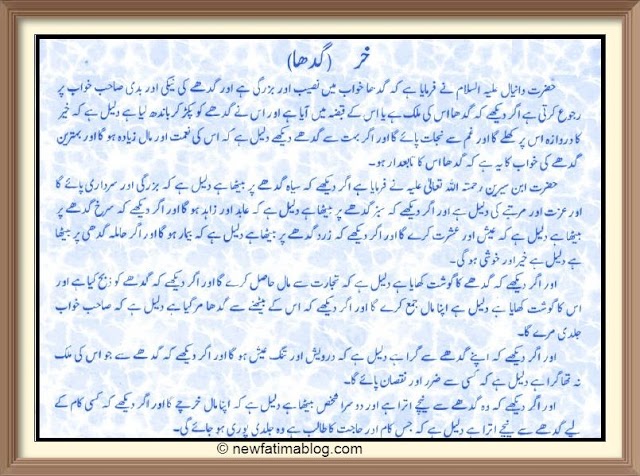 خر (گدھا)
حضرت دانیال علیہ السلام نے فرمایا ہے کہ گدھا خواب میں نصیب اور بزرگی ہے اور گدھے کی نیکی اور بدی صاحب خواب پر
رجوع کرتی ہے اگر دیکھے کہ گدھا اس کی ملک ہے یا اس کے قبضہ میں آیا ہے اور اس نے گدھے کو پکڑ کر باندھ لیا ہے دلیل ہے کہ خیر
کا دروازہ اس پر کھلے گا اور غم سے نجات پائے گا اور اگر بہت سے گدھے دیکھے دلیل ہے کہ اس کی نعمت اور مال زیادہ ہو گا اور بہترین
گدھے کی خواب کا یہ ہے کہ گدھا اس کا تابعدار ہو۔
حضرت ابن سیرین رحمتہ اللہ تعالیٰ علیہ نے فرمایا ہے اگر دیکھے کہ سیاہ گدھے پر بیٹھا ہے دلیل ہے کہ بزرگی اور سرداری پائے گا
اور عزت اور مرتبے کی دلیل ہے اور اگر دیکھے کہ سبز گدھے پر بیٹھا ہے دلیل ہے کہ عابد اور زاہد ہو گا اور اگر دیکھے کہ سرخ گدھے پر
بیٹھا ہے دلیل ہے کہ عیش اور عشرت کرے گا اور اگر دیکھے کہ زرد گدھے پر بیٹھا ہے دلیل ہے کہ بیمار ہو گا اور اگر دیکھے کہ حاملہ گدھی پر بیٹھا
ہے دلیل ہے خیر اور خوشی ہو گی۔
اور اگر دیکھے کہ گدھے کا گوشت کھایا ہے دلیل ہے کہ تجارت سے مال حاصل کرے گا اور اگر دیکھے کہ گدھے کو ذبح کیا ہے اور
اس کا گوشت کھایا ہے دلیل ہے اپنا مال جمع کرے گا اور اگر دیکھے کہ اس کے بیٹھنے سے گدھا مر گیا ہے دلیل ہے کہ صاحب خواب
جلدی مرے گا۔
اور اگر دیکھے کہ اپنے گدھے سے گرا ہے دلیل ہے کہ درویش اور تنگ عیش ہو گا اور اگر دیکھے کہ گدھے سے جو اس کی ملک
نہ تھا گرا ہے دلیل ہے کہ کسی سے ضرر اور نقصان پائے گا۔
اور اگر دیکھے کہ وہ گدھے سے نیچے اترا ہے اور دوسرا شخص بیٹھا ہے دلیل ہے کہ اپنا مال خرچے گا اور اگر دیکھے کہ کسی کام کے
لیے گدھے سے نیچے اترا ہے دلیل ہے کہ جس کام اور حاجت کا طالب ہے وہ جلدی پوری ہو جائے گی۔
© newfatimablog.com